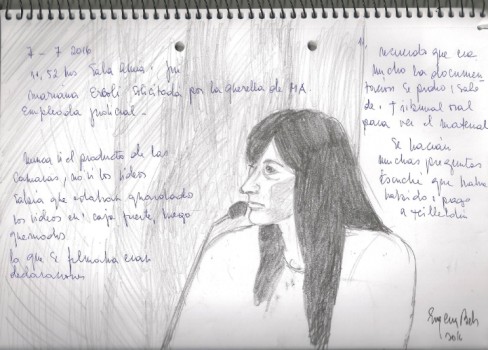 7 - 7 2016
11,52 hs Sala llena:
Mariana solicitada por la querella de MA.
Empleada judicial -
Nunca vi el producto de las
camaras, no vi los videos
Sabia que estaban guardados
los videos en: caja fuerte, luego
quemados
lo que se filmaba eran
declaraciones
recuerdo que era
mucho los documen
Se pedia: Sala
de: Tribunal oral
para ver el material
Se hacian
muchas preguntas
Escuché que habia
habido: pago
a Telleldin
2016